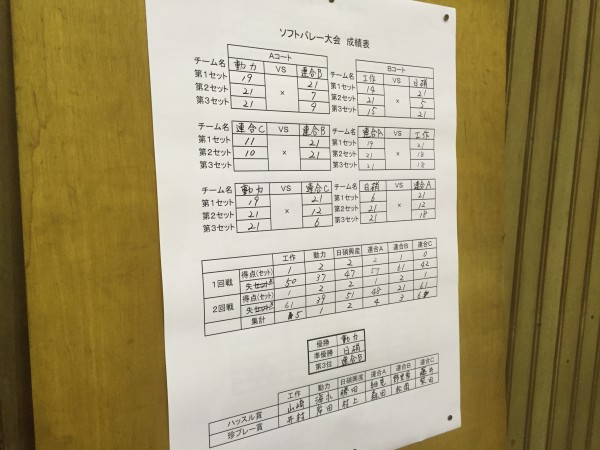 ソフトバレー大会 成績表
Aコート
チーム名 動力 VS 連合B
第1セット 19 × 21
第2セット 21 7
第3セット 21 9
Bコート
チーム名 工作 VS 日硝
第1セット 14 × 21
第2セット 21 5
第3セット 15 21
チーム名 連合C VS 連合B
第1セット 11 × 21
第2セット 10 21
第3セット
チーム名 連合A VS 工作
第1セット 19 × 21
第2セット 21 18
第3セット 21 18
チーム名 動力 VS 連合C
第1セット 19 × 21
第2セット 21 12
第3セット 21 6
チーム名 日硝 VS 連合A
第1セット 6 × 21
第2セット 21 12
第3セット 21 18
工作 動力 日硝興産 連合A 連合B 連合C
1回戦 得点(セット) 1 2 2 2 1 0
失セット 50 37 47 57 61 42
2回戦 得点(セット) 1 2 2 1 2 1
失セット 61 39 51 48 21 61
集計 5 1 2 4 3 6
優勝 動力
準優勝 日硝
第3位 連合B
工作 動力 日硝興産 連合A 連合B 連合C
ハッスル賞 山崎 清水 勝田 細見
珍プレー賞 井村 岸田 村上 森田 松岡 柴田